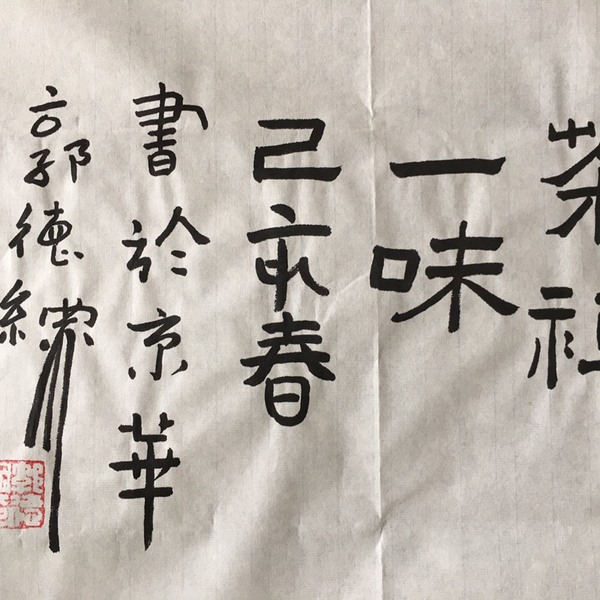 茶
一味
己亥春
書於京華
郭德綱